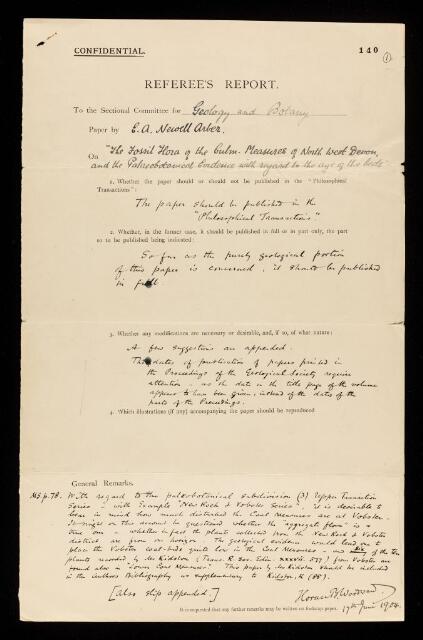 CONFIDENTIAL.
140
1
REFEREE'S REPORT.
To the Sectional Committee for Geology and Botany
Paper by E. A. Newell Arber.
On "The Fossil Flora of the Culm-Measures of North West Devon,
and the Palæobotanical Evidence with regard to the age of the Beds".
1. Whether the paper should or should not be published in the "Philosophical
Transactions":
The paper should be published in the
"Philosophical Transactions"
2. Whether, in the former case, it should be published in full or in part only, the part
so to be published being indicated:
So far as the purely geological portion
of this paper is concerned, it should be published
in full.
3. Whether any modifications are necessary or desirable, and, if so, of what nature:
A few suggestions are appended.
The dates of publication of papers printed in
the Proceedings of the Geological Society require
attention - as the date on the title page of the volume
appears to have been given, instead of the dates of the
parts of the Proceedings.
4. Which illustrations (if any) accompanying the paper should be reproduced
General Remarks.
MS p. 78. With regard to the palæobotanical subdivision (3) Upper Transition
Series - with Example "New Rock & Vobster Series", it is desirable to
bear in mind how much disturbed the Coal Measures are at Vobster.
It might on this account be questioned whether the "aggregate flora" is a
true one - whether in fact the plants collected from the New Rock & Vobster
district are from one horizon. The geological evidence would lead one to
place the Vobster coal-beds quite low in the Coal Measures - and of the
plants recorded by Mr Kidston (Trans. R. Soc. Edin. xxxvii. 577) from Vobster are
found also in "Lower Coal Measures". This paper by Mr Kidston should be included
in the Authors Bibliography as supplementary to Kidston, R. (88).
[Also slip appended.]
Horace B. Woodward
It is requested that any further remarks may be written on foolscap paper. 17th June 1904.